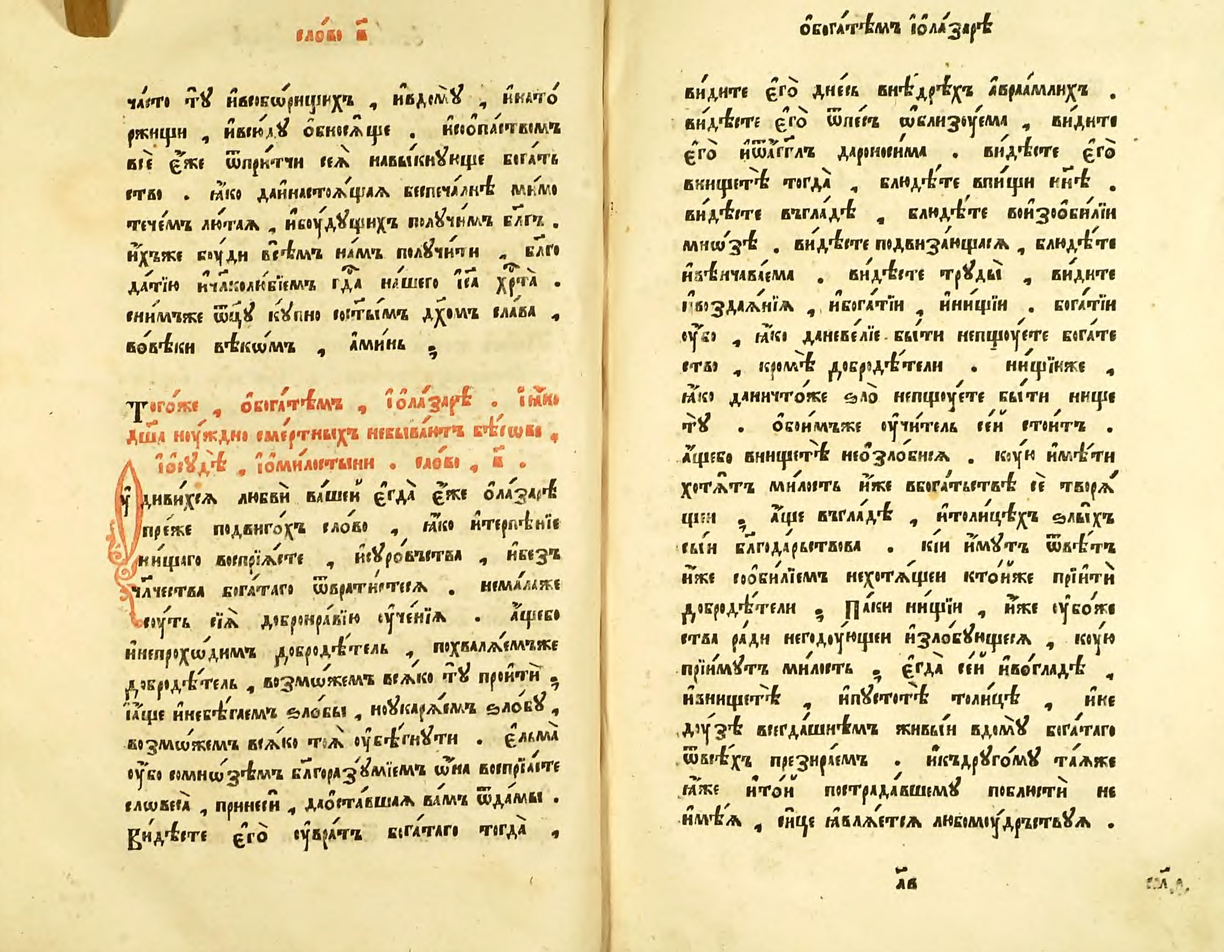 сло́во в҃
ча́сто тꙋ̀ ѝвсобѡ́рищихъ , ѝвдомꙋ̀ , ѝнато́
ржищи , ѝвсю́дꙋ о҆бнося́ще . ѝсопа́ствомъ
всѐ є҆́же ѿпри́тчи сеѧ̀ навы́кнꙋюще бога́ть
ство . ꙗ҆́ко данастоѧ́щаѧ беспеча́лнѣ ми́мо
тече́мъ лю́таѧ , ѝбоу́дꙋщихъ полꙋ́чимъ бл҃гъ .
и҆́хъже боу́ди всѣ́мъ на́мъ полꙋчи́ти , бл҃го
да́тїю ѝчл҃колю́бїемъ гдⷭ҇а на́шего і҆с҃а хрⷭ҇та̀ .
сни́мъже ѿц҃ꙋ кꙋ́пно сост҃ы́мъ дх҃омъ сла́ва ,
во́вѣки вѣкѡ́мъ , а҆ми́нь ;
Того́же , о҆бога́тѣмъ , і҆ѻла́зарѣ . і҆ꙗ҆́ко
дш҃а ноу́ждно сме́ртныхъ небыва́ютъ бѣ́сѡве ,
і҆ѻсꙋдѣ̀ , і҆ѻми́лостыни . сло́во , в҃ .
Оу҆диви́хсѧ любвѝ ва́шей є҆гда̀ є҆́же ѻ҆ла́зарѣ
пре́же подвиго́хъ сло́во , ꙗ҆́ко ѝтерпѣ́нїе
ни́щаго воспрїѧ́сте , ѝсꙋро́вьства , ѝбезъ
чл҃чества бога́таго ѿврати́стесѧ . нема́лаже
соу́ть сїѧ̀ добронра́вїю оу҆че́нїѧ . а҆́щебо
ѝнепрохѡ́димъ добродѣ́тель , похвалѧ́емъже
добродѣ́тель , возмѡ́жемъ всѧ́ко тꙋ̀ пройтѝ ;
і҆а҆́ще ѝнебѣ́гаемъ ѕло́бы , ноукарѧ́емъ ѕло́бꙋ ,
возмѡ́жемъ всѧ́ко тоѧ̀ оу҆бѣ́гнꙋти . є҆льма̀
оу҆́бо сомнѡ́зѣмъ бл҃горазꙋ́мїемъ ѡ҆́на воспрїѧ́сте
словеса̀ , принесѝ , даоста́вшаѧ ва́мъ ѿда́мы .
Ви́дѣсте є҆го̀ оу҆вра́тъ бога́таго тогда̀ ,
о҆бога́тѣмъ і҆ѻла́зарѣ
ви́дите є҆го̀ дне́сь внѣ́дрѣхъ а҆враа́млихъ .
ви́дѣсте є҆го̀ ѿпе́съ ѡ҆близоу́ема , ви́дите
є҆го̀ ѝѿа҆́гг҃лъ дароноси́ма . ви́дѣсте є҆го̀
вни́щетѣ тогда̀ , блюдѣ́те впи́щи нн҃ѣ .
ви́дѣсте въгла́дѣ , блюдѣ́те воизоби́лїи
мнѡ́зѣ . ви́дѣсте подвиза́ющасѧ , блюдѣ́те
ѝвѣнчава́ема . ви́дѣсте трꙋды̀ , ви́дите
ѝвоздаѧ́нїѧ , ѝбога́тїи , ѝни́щїи . бога́тїи
оу҆́бо , ꙗ҆́ко даневе́лїе бы́ти непщоу́ете бога́те
ство , кромѣ̀ добродѣ́тели . ни́щїиже ,
ꙗ҆́ко даничто́же ѕло̀ непщоу́ете бы́ти нище
тꙋ̀ . о҆бои́мъже оу҆чи́тель се́й стои́тъ .
а҆́щебо вни́щетѣ неѻ҆ѕло́бисѧ . коу́ю и҆мѣ́ти
хотѧ́тъ ми́лость и҆́же вбога́тьствѣ сѐ творѧ́
щеи ; а҆́ще въгла́дѣ , ѝтоли́цѣхъ ѕлы́хъ
сы́и бл҃года́рьствова . кі́и и҆́мꙋтъ ѿвѣ́тъ
и҆́же сооби́лїемъ нехотѧ́щеи кто́йже прїитѝ
добродѣ́тели ; Па́ки ни́щїи , и҆́же оу҆бо́же
ства ра́ди негодоу́ющеи ѝзло́бꙋющесѧ , коу́ю
прїи́мꙋтъ ми́лость ; є҆гда̀ се́й ѝвогла́дѣ ,
ѝвни́щетѣ , ѝпꙋстотѣ̀ толи́цѣ , ѝне
дꙋ́зѣ всегда́шнѣмъ живы́и вдомꙋ̀ бога́таго
ѿвсѣ́хъ презира́емъ . ѝкъдрꙋго́мꙋ та́ѧже
ꙗ҆́же ѝто́й пострада́вшемꙋ побли́сти не
и҆мѣ́ѧ , си́це ꙗ҆влѧ́етсѧ любомоу́дрьствꙋѧ .
л҃в